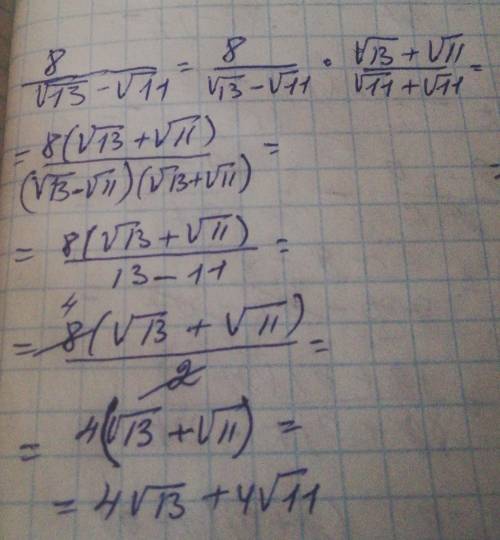 8/(√13 − √11) = 8/(√13 − √11) · (√13 + √11)/(√11 + √11) =
= 8(√13 + √11)/((√13 − √11)(√13 + √11)) =
= 8(√13 + √11)/(13 − 11) =
= 4 8(√13 + √11)/2 =
= 4(√13 + √11) =
= 4√13 + 4√11